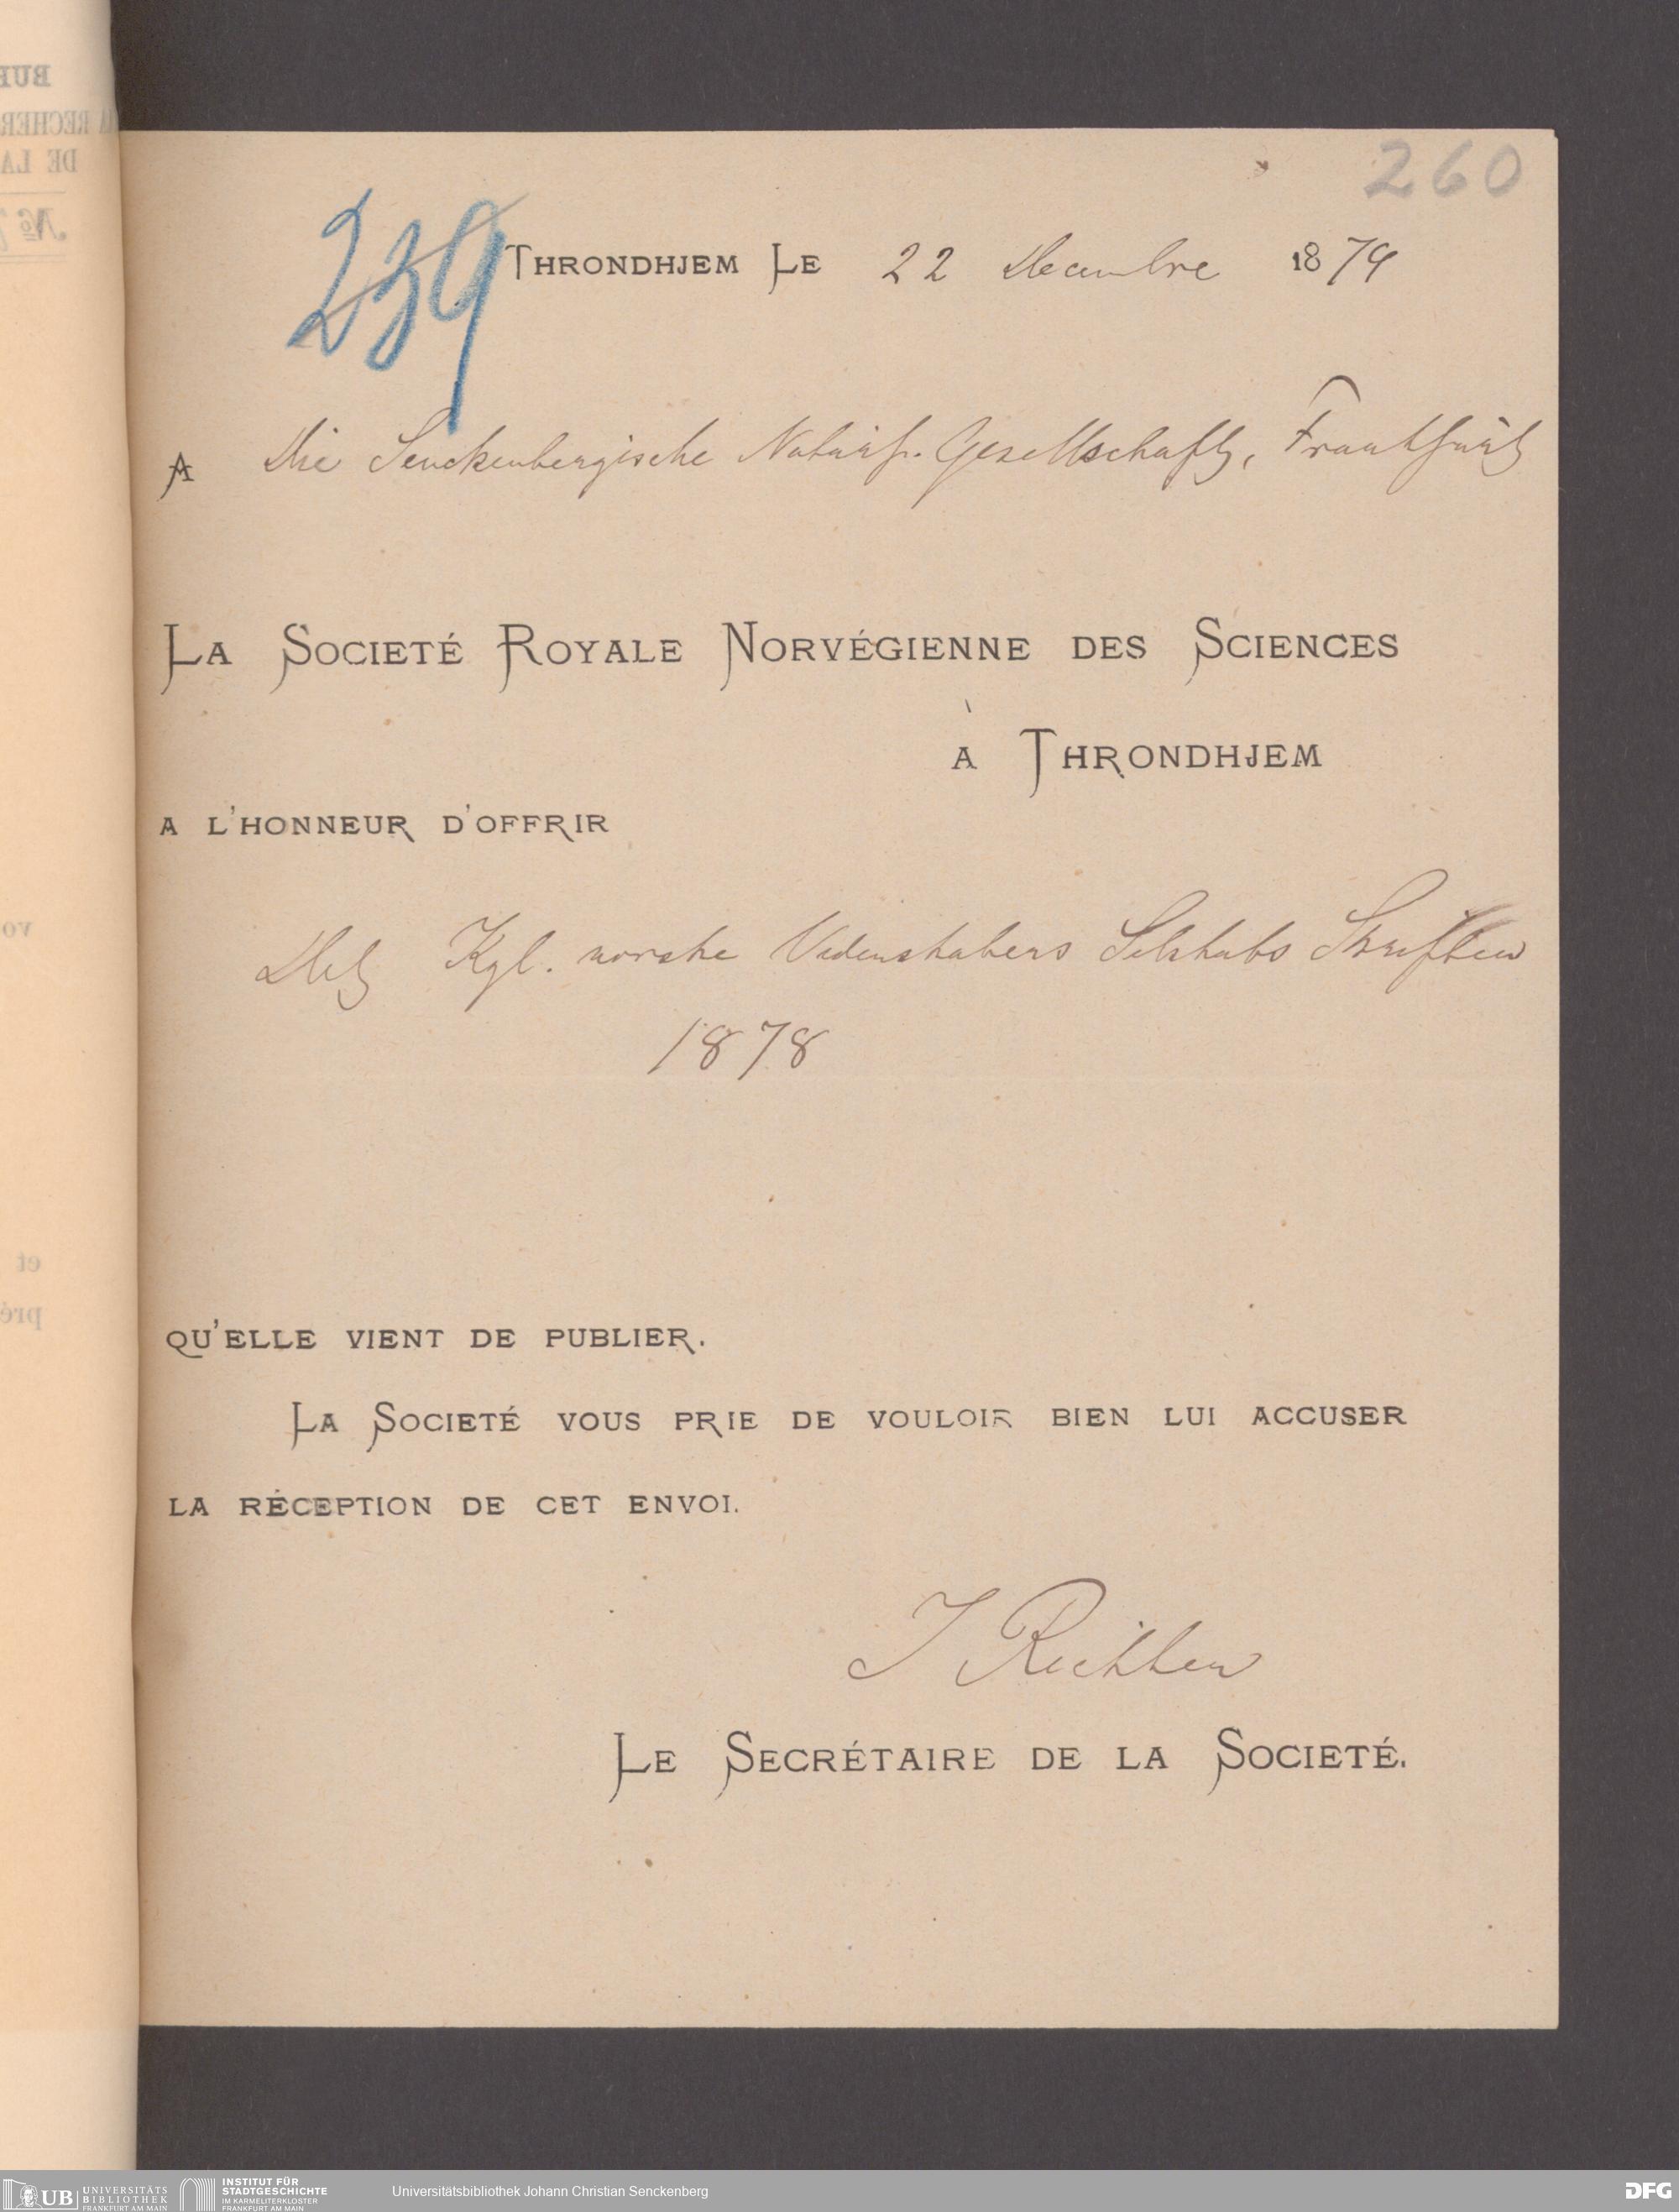 260
239
THRONDHJEM LE 22 Decembre 1879
A Die Senckenbergische Naturf. Gesellschaft, Frankfurt
LA SOCIETÉ ROYALE NORVÉGIENNE DES SCIENCES
À THRONDHJEM
A L'HONNEUR D'OFFRIR
Det Kgl. norske Videnskabers Selskabs Skrifter
1878
QU'ELLE VIENT DE PUBLIER.
LA SOCIETÉ VOUS PRIE DE VOULOIR BIEN LUI ACCUSER
LA RÉCEPTION DE CET ENVOI.
J Richter
LE SECRÉTAIRE DE LA SOCIETÉ.
UB UNIVERSITÄTS BIBLIOTHEK FRANKFURT AM MAIN
INSTITUT FÜR STADTGESCHICHTE IM KARMELITERKLOSTER FRANKFURT AM MAIN
Universitätsbibliothek Johann Christian Senckenberg
DFG